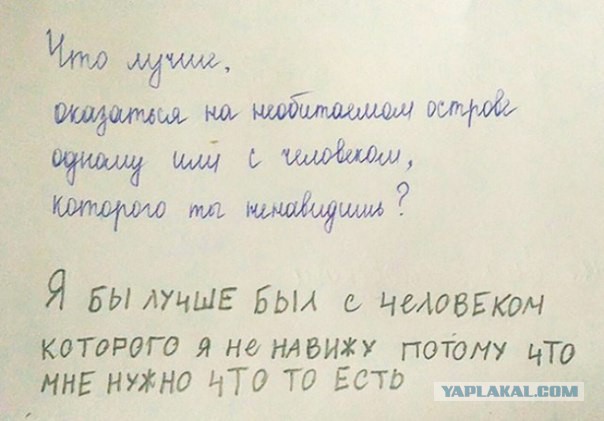 Что лучше,
оказаться на необитаемом острове
одному или с человеком,
которого ты ненавидишь?
Я БЫ ЛУЧШЕ БЫЛ С ЧЕЛОВЕКОМ
КОТОРОГО Я НЕ НАВИЖУ ПОТОМУ ЧТО
МНЕ НУЖНО ЧТО ТО ЕСТЬ
YAPLAKAL.COM